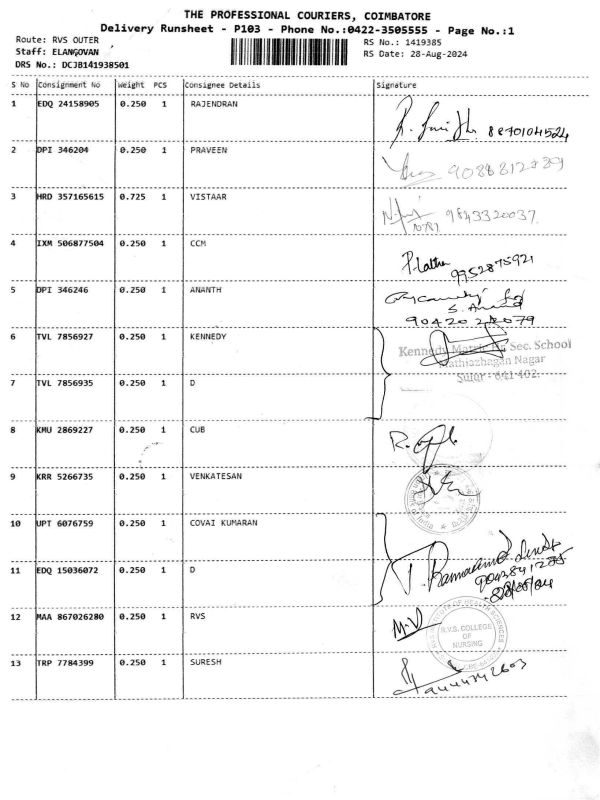 THE PROFESSIONAL COURIERS, COIMBATORE
Delivery Runsheet - P103 - Phone No.:0422-3505555 - Page No.:1
Route: RVS OUTER
RS No.: 1419385
Staff: ELANGOVAN
RS Date: 28-Aug-2024
DRS No.: DCJB141938501
S No Consignment No Weight PCS Consignee Details Signature
1 EDQ 24158905 0.250 1 RAJENDRAN
2 DPI 346204 0.250 1 PRAVEEN
3 HRD 357165615 0.725 1 VISTAAR
9843320037
4 IXM 506877504 0.250 1 CCM
9952875921
5 DPI 346246 0.250 1 ANANTH
S. Anand
6 TVL 7856927 0.250 1 KENNEDY
Kennedy Matric Hr. Sec. School
Mathiazhagan Nagar
Sulur - 641 402.
7 TVL 7856935 0.250 1 D
8 KMU 2869227 0.250 1 CUB
9 KRR 5266735 0.250 1 VENKATESAN
10 UPT 6076759 0.250 1 COVAI KUMARAN
11 EDQ 15036072 0.250 1 D
12 MAA 867026280 0.250 1 RVS
R.V.S. COLLEGE
OF
NURSING
13 TRP 7784399 0.250 1 SURESH